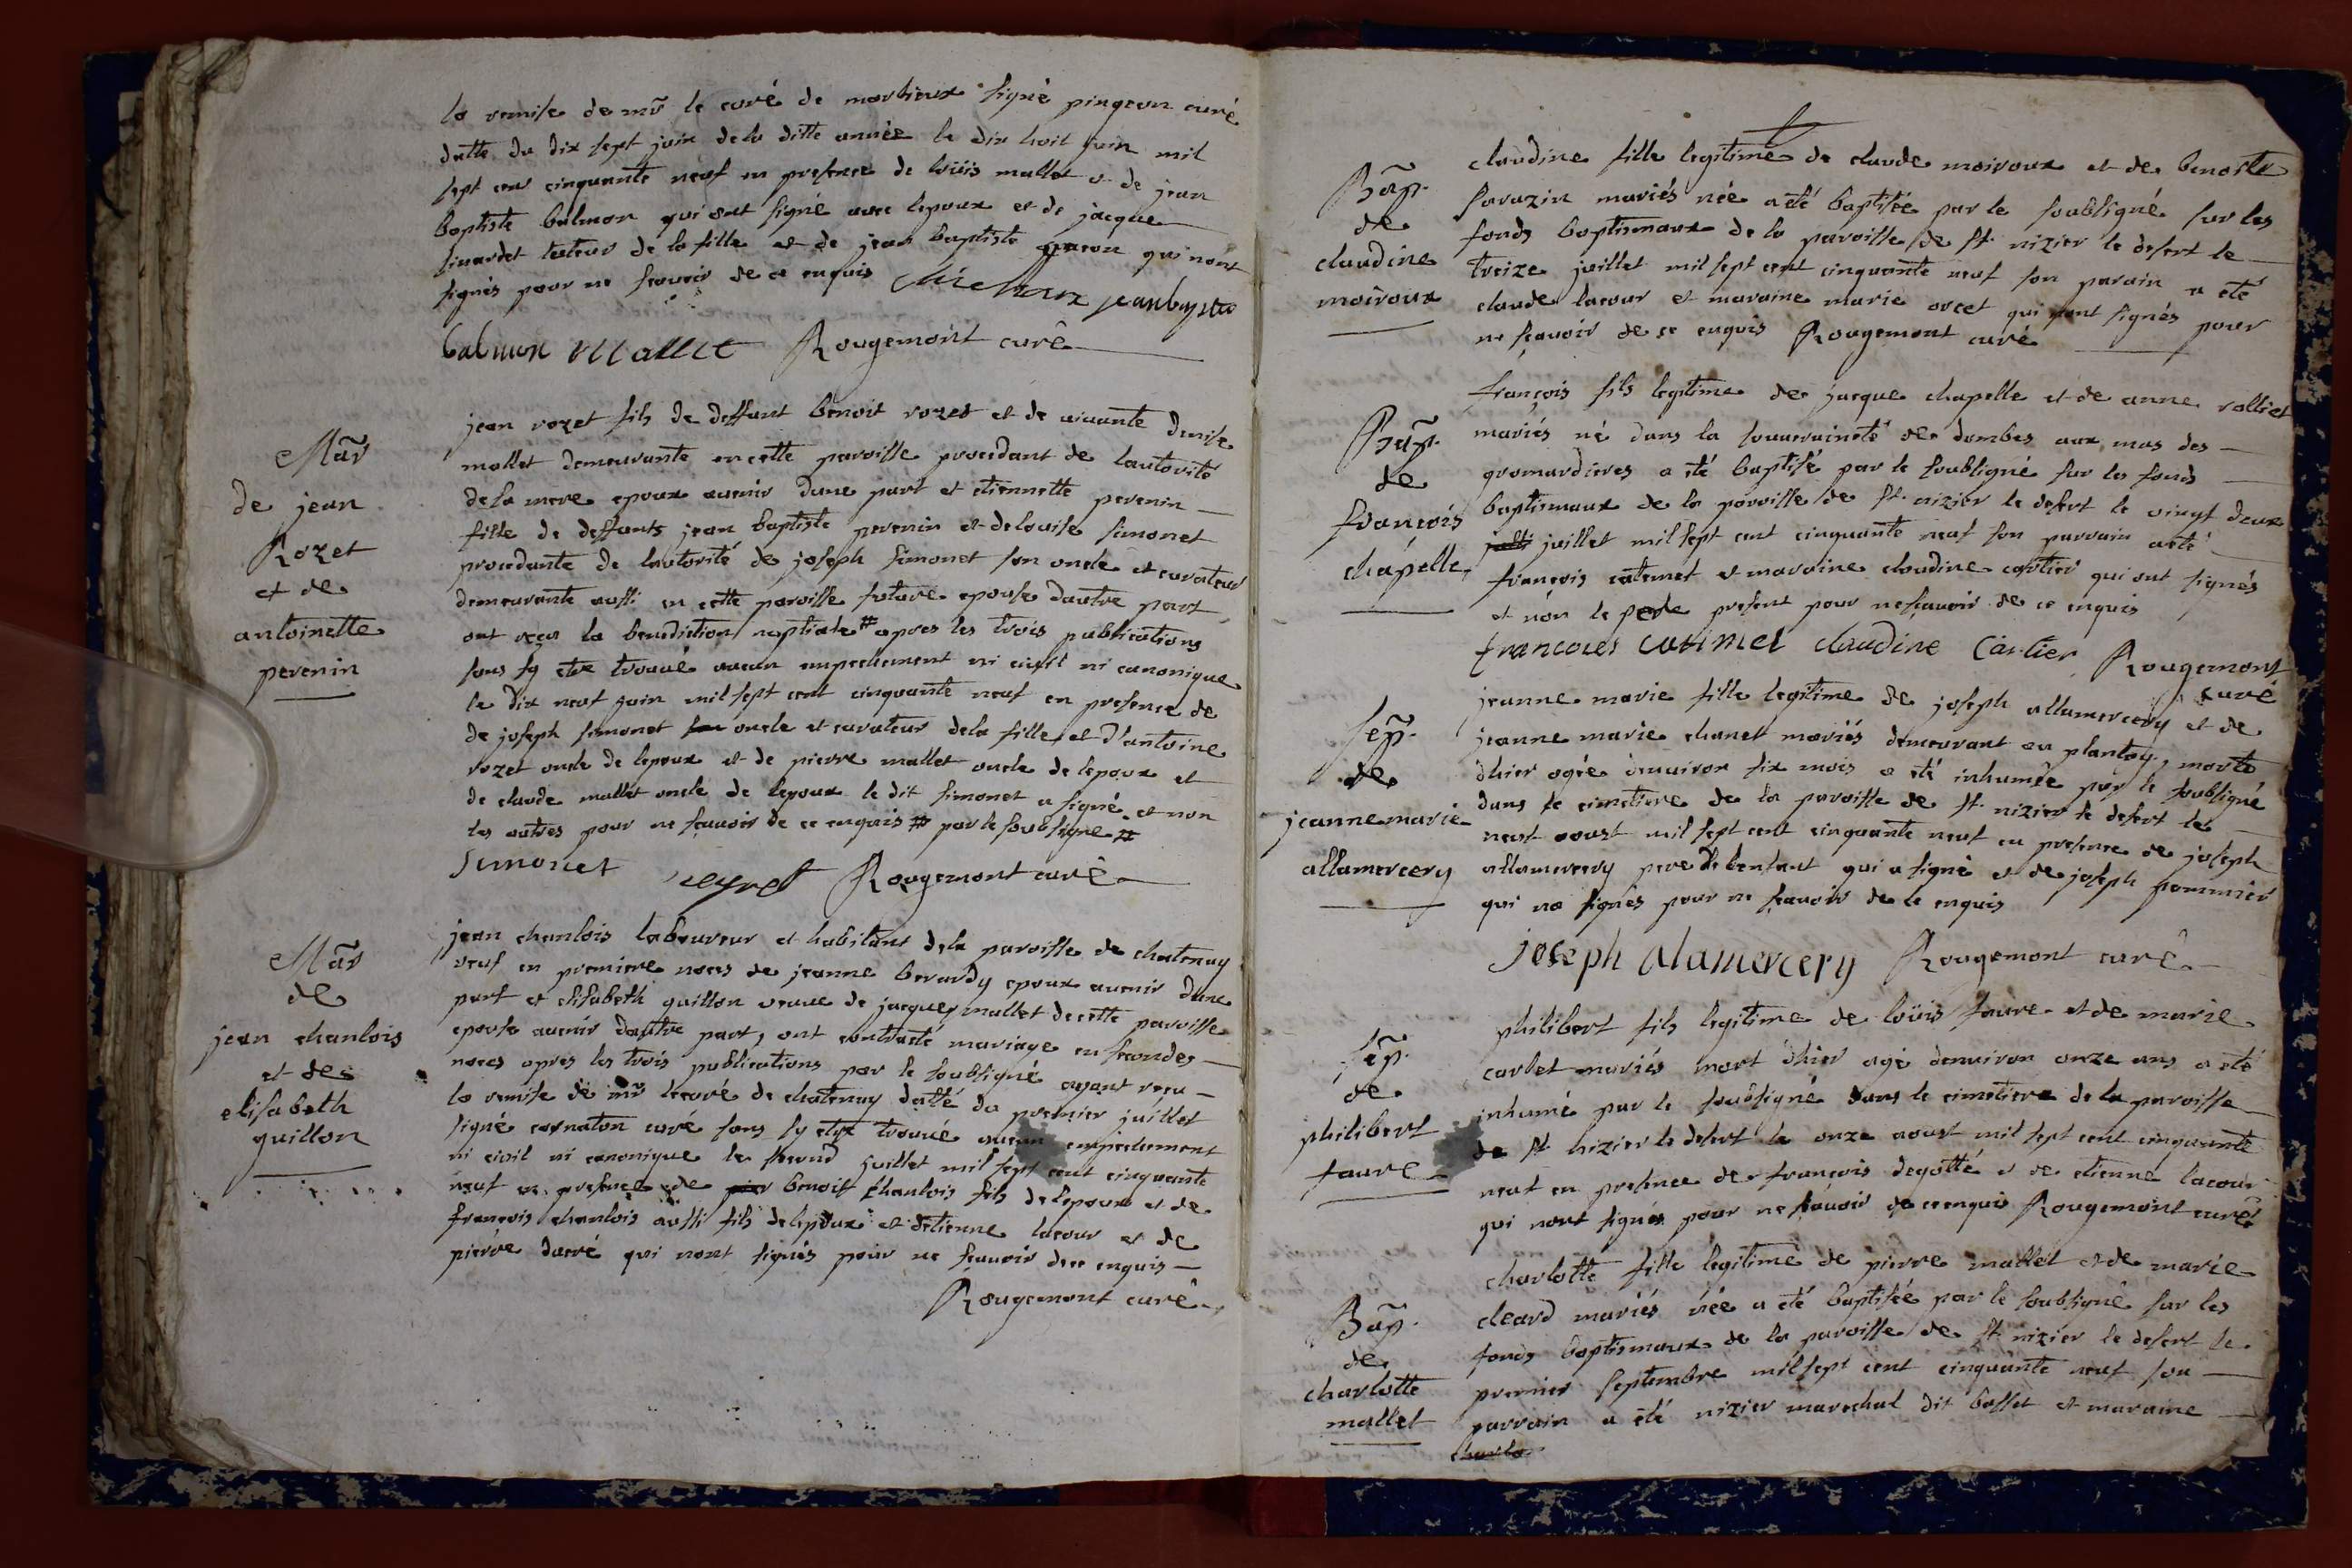 la remise de mr̃ le curé de marlieux signé pingeon curé
datté du dix sept juin de la ditte année le dix huit juin mil
sept cent cinquante neuf en presence de loüis mallet et de jean
baptiste balmon qui ont signé avec lepoux et de jacque
sinardet tuteur de la fille et de jean baptiste qui nont
signés pour ne scavoir de ce enquis Michon jean baptiste
balmon Mallet Rougemont curé
Mãr
de jean
Rozet
et de
antoinette
perenin
jean rozet fils de deffunt benoit rozet et de vivante denise
mallet demeurante en cette paroisse procedant de lautorité
de sa mere epoux avenir dune part et etiennette perenin
fille de deffunts jean baptiste perenin et de louise simonet
procedante de lautorité de joseph simonet son oncle et curateur
demeurante aussi en cette paroisse future epouse dautre part
ont reçu la benediction nuptiale # apres les trois publications
sans sy etre trouvé aucun empechement ni civil ni canonique
le dix neuf juin mil sept cent cinquante neuf en presence de
de joseph simonet oncle et curateur de la fille et d'antoine
rozet oncle de lepoux et de pierre mallet oncle de lepoux et
de claude mallet oncle de lepoux le dit simonet a signé et non
les autres pour ne scavoir de ce enquis # par le soubsigné #
Simonet Rougemont curé
Mãr
de
jean chanlois
et de
elisabeth
guillon
jean chanlois laboureur et habitant de la paroisse de chatenay
veuf en premiere noces de jeanne berardy epoux avenir dune
part et elisabeth guillon veuve de jacques mallet de cette paroisse
epouse avenir dautre part, ont contracté mariage en secondes
noces apres les trois publications par le soubsigné ayant reçu
la remise de mr̃ le curé de chatenay datté du premier juillet
signé cornaton curé sans sy etre trouvé aucun empechement
ni civil ni canonique le second juillet mil sept cent cinquante
neuf en presence de benoit chanlois fils de lepoux et de
françois chanlois aussi fils de lepoux et detienne lacour et de
pierre ducré qui nont signés pour ne scavoir de ce enquis
Rougemont curé
Bap̃.
de
claudine
moiroux
claudine fille legitime de claude moiroux et de benoite
sarazin mariés née a été baptisée par le soubsigné sur les
fonds baptismaux de la paroisse de st. nizier le desert le
treize juillet mil sept cent cinquante neuf son parain a été
claude lacour et maraine marie orcet qui nont signés pour
ne sçavoir de ce enquis Rougemont curé
Bap̃.
de
françois
chapelle
françois fils legitime de jacque chapelle et de anne rolliet
mariés né dans la souveraineté de dombes aux mas des
gromardieres a été baptisé par le soubsigné sur les fonds
baptismaux de la paroisse de st. nizier le desert le vingt deux
juillet mil sept cent cinquante neuf son parrain a été
françois catimel et maraine claudine cartier qui ont signés
et non le pere present pour ne scavoir de ce enquis
francoies catimel claudine Cartier Rougemont
curé
Sep̃.
de
jeanne marie
allamercery
jeanne marie fille legitime de joseph allamercery et de
jeanne marie chanet mariés demeurant au plantay, morte
dhier agée denviron six mois a été inhumée par le soubsigné
dans le cimetiere de la paroisse de st. nizier le desert le
neuf aoust mil sept cent cinquante neuf en presence de joseph
allamercery pere de lenfant qui a signé et de joseph pommier
qui na signés pour ne scavoir de ce enquis
joseph alamercery Rougemont curé
Sep̃.
de
philibert
faure
philibert fils legitime de loüis faure et de marie
carlet mariés mort dhier agé denviron onze ans a été
inhumé par le soubsigné dans le cimetiere de la paroisse
de st nizier le desert le onze aoust mil sept cent cinquante
neuf en presence de françois degotté et de etienne lacour
qui nont signés pour ne scavoir de ce enquis Rougemont curé
Bap̃.
de
charlotte
mallet
charlotte fille legitime de pierre mallet et de marie
cleard mariés née a été baptisée par le soubsigné sur les
fonds baptismaux de la paroisse de st. nizier le desert le
premier septembre mil sept cent cinquante neuf son
parrain a été nizier marechal dit basset et maraine
charlo